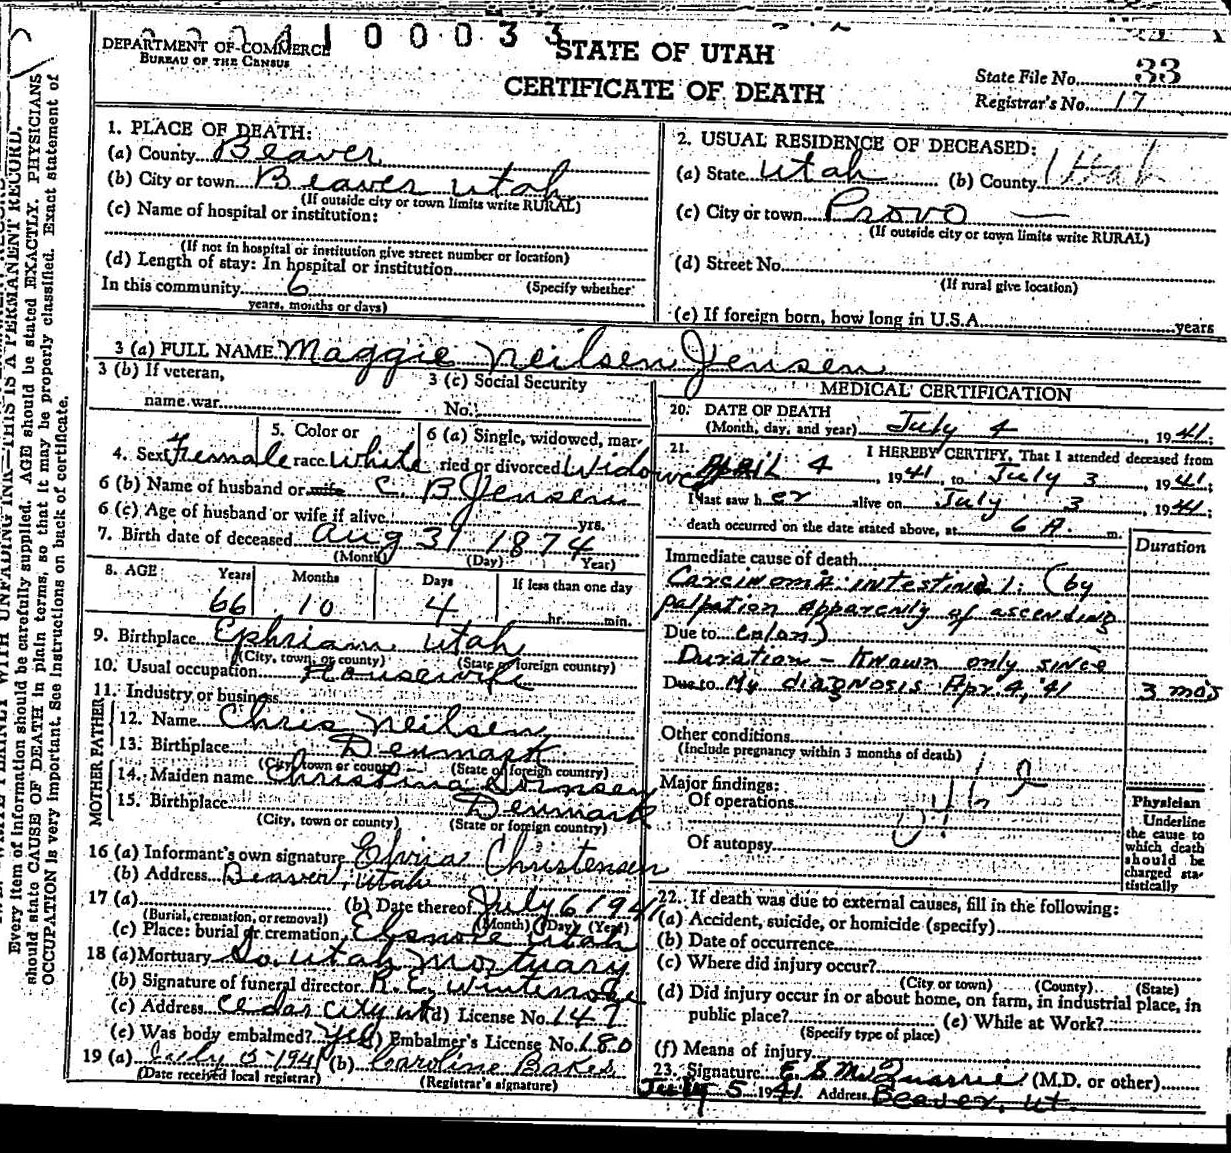 DEPARTMENT OF COMMERCE
BUREAU OF THE CENSUS
4 1 0 0 0 3 3
STATE OF UTAH
CERTIFICATE OF DEATH
State File No. 33
Registrar's No. 17
1. PLACE OF DEATH:
(a) County Beaver
(b) City or town Beaver Utah
(If outside city or town limits write RURAL)
(c) Name of hospital or institution:
(If not in hospital or institution give street number or location)
(d) Length of stay: In hospital or institution
In this community 6 (Specify whether
years, months or days)
2. USUAL RESIDENCE OF DECEASED:
(a) State Utah (b) County Utah
(c) City or town Provo —
(If outside city or town limits write RURAL)
(d) Street No.
(If rural give location)
(e) If foreign born, how long in U.S.A. years
3 (a) FULL NAME Maggie Neilsen Jensen
3 (b) If veteran,
name war
3 (c) Social Security
No.
4. Sex Female
5. Color or
race White
6 (a) Single, widowed, mar-
ried or divorced Widowed
6 (b) Name of husband or wife C. B Jensen
6 (c) Age of husband or wife if alive yrs.
7. Birth date of deceased Aug 31 1874
(Month) (Day) Year)
8. AGE Years Months Days If less than one day
66 10 4 hr. min.
9. Birthplace Ephriam Utah
(City, town, or county) (State or foreign country)
10. Usual occupation Housewife
11. Industry or business
FATHER
12. Name Chris Neilsen
13. Birthplace Denmark
(City town or county) (State or foreign country)
MOTHER
14. Maiden name Christina
15. Birthplace Denmark
(City, town or county) (State or foreign country)
16 (a) Informant's own signature Elvira Christensen
(b) Address Beaver, Utah
17 (a) (b) Date thereof July 6 1941
(Burial, cremation, or removal) (Month) (Day) (Year)
(c) Place: burial or cremation Elsnore Utah
18 (a) Mortuary So. Utah Mortuary
(b) Signature of funeral director R. E.
(c) Address Cedar City Ut (d) License No. 147
(e) Was body embalmed? Yes Embalmer's License No. 180
19 (a) July 5-1941 (b) Caroline Bakes
(Date received local registrar) (Registrar's signature)
MEDICAL CERTIFICATION
20. DATE OF DEATH
(Month, day, and year) July 4, 1941;
21. I HEREBY CERTIFY, That I attended deceased from
April 4, 1941, to July 3, 1941;
I last saw her alive on July 3, 1941;
death occurred on the date stated above, at 6 A. m.
Duration
Immediate cause of death
Carcinoma: intestinal: (by
palpation apparenly of ascending
Due to colon)
Duration - Known only since
Due to My diagnosis Apr 4, '41 3 mos
Other conditions
(Include pregnancy within 3 months of death)
Major findings:
Of operations
Of autopsy
Physician
Underline
the cause to
which death
should be
charged sta-
tistically
22. If death was due to external causes, fill in the following:
(a) Accident, suicide, or homicide (specify)
(b) Date of occurrence
(c) Where did injury occur?
(City or town) (County) (State)
(d) Did injury occur in or about home, on farm, in industrial place, in
public place? (e) While at Work?
(Specify type of place)
(f) Means of injury
23. Signature E S McQuarrie (M.D. or other)
July 5 1941 Address Beaver, Ut.
WRITE PLAINLY WITH UNFADING INK—THIS IS A PERMANENT RECORD.
Every item of information should be carefully supplied. AGE should be stated EXACTLY. PHYSICIANS
should state CAUSE OF DEATH in plain terms, so that it may be properly classified. Exact statement of
OCCUPATION is very important. See instructions on back of certificate.